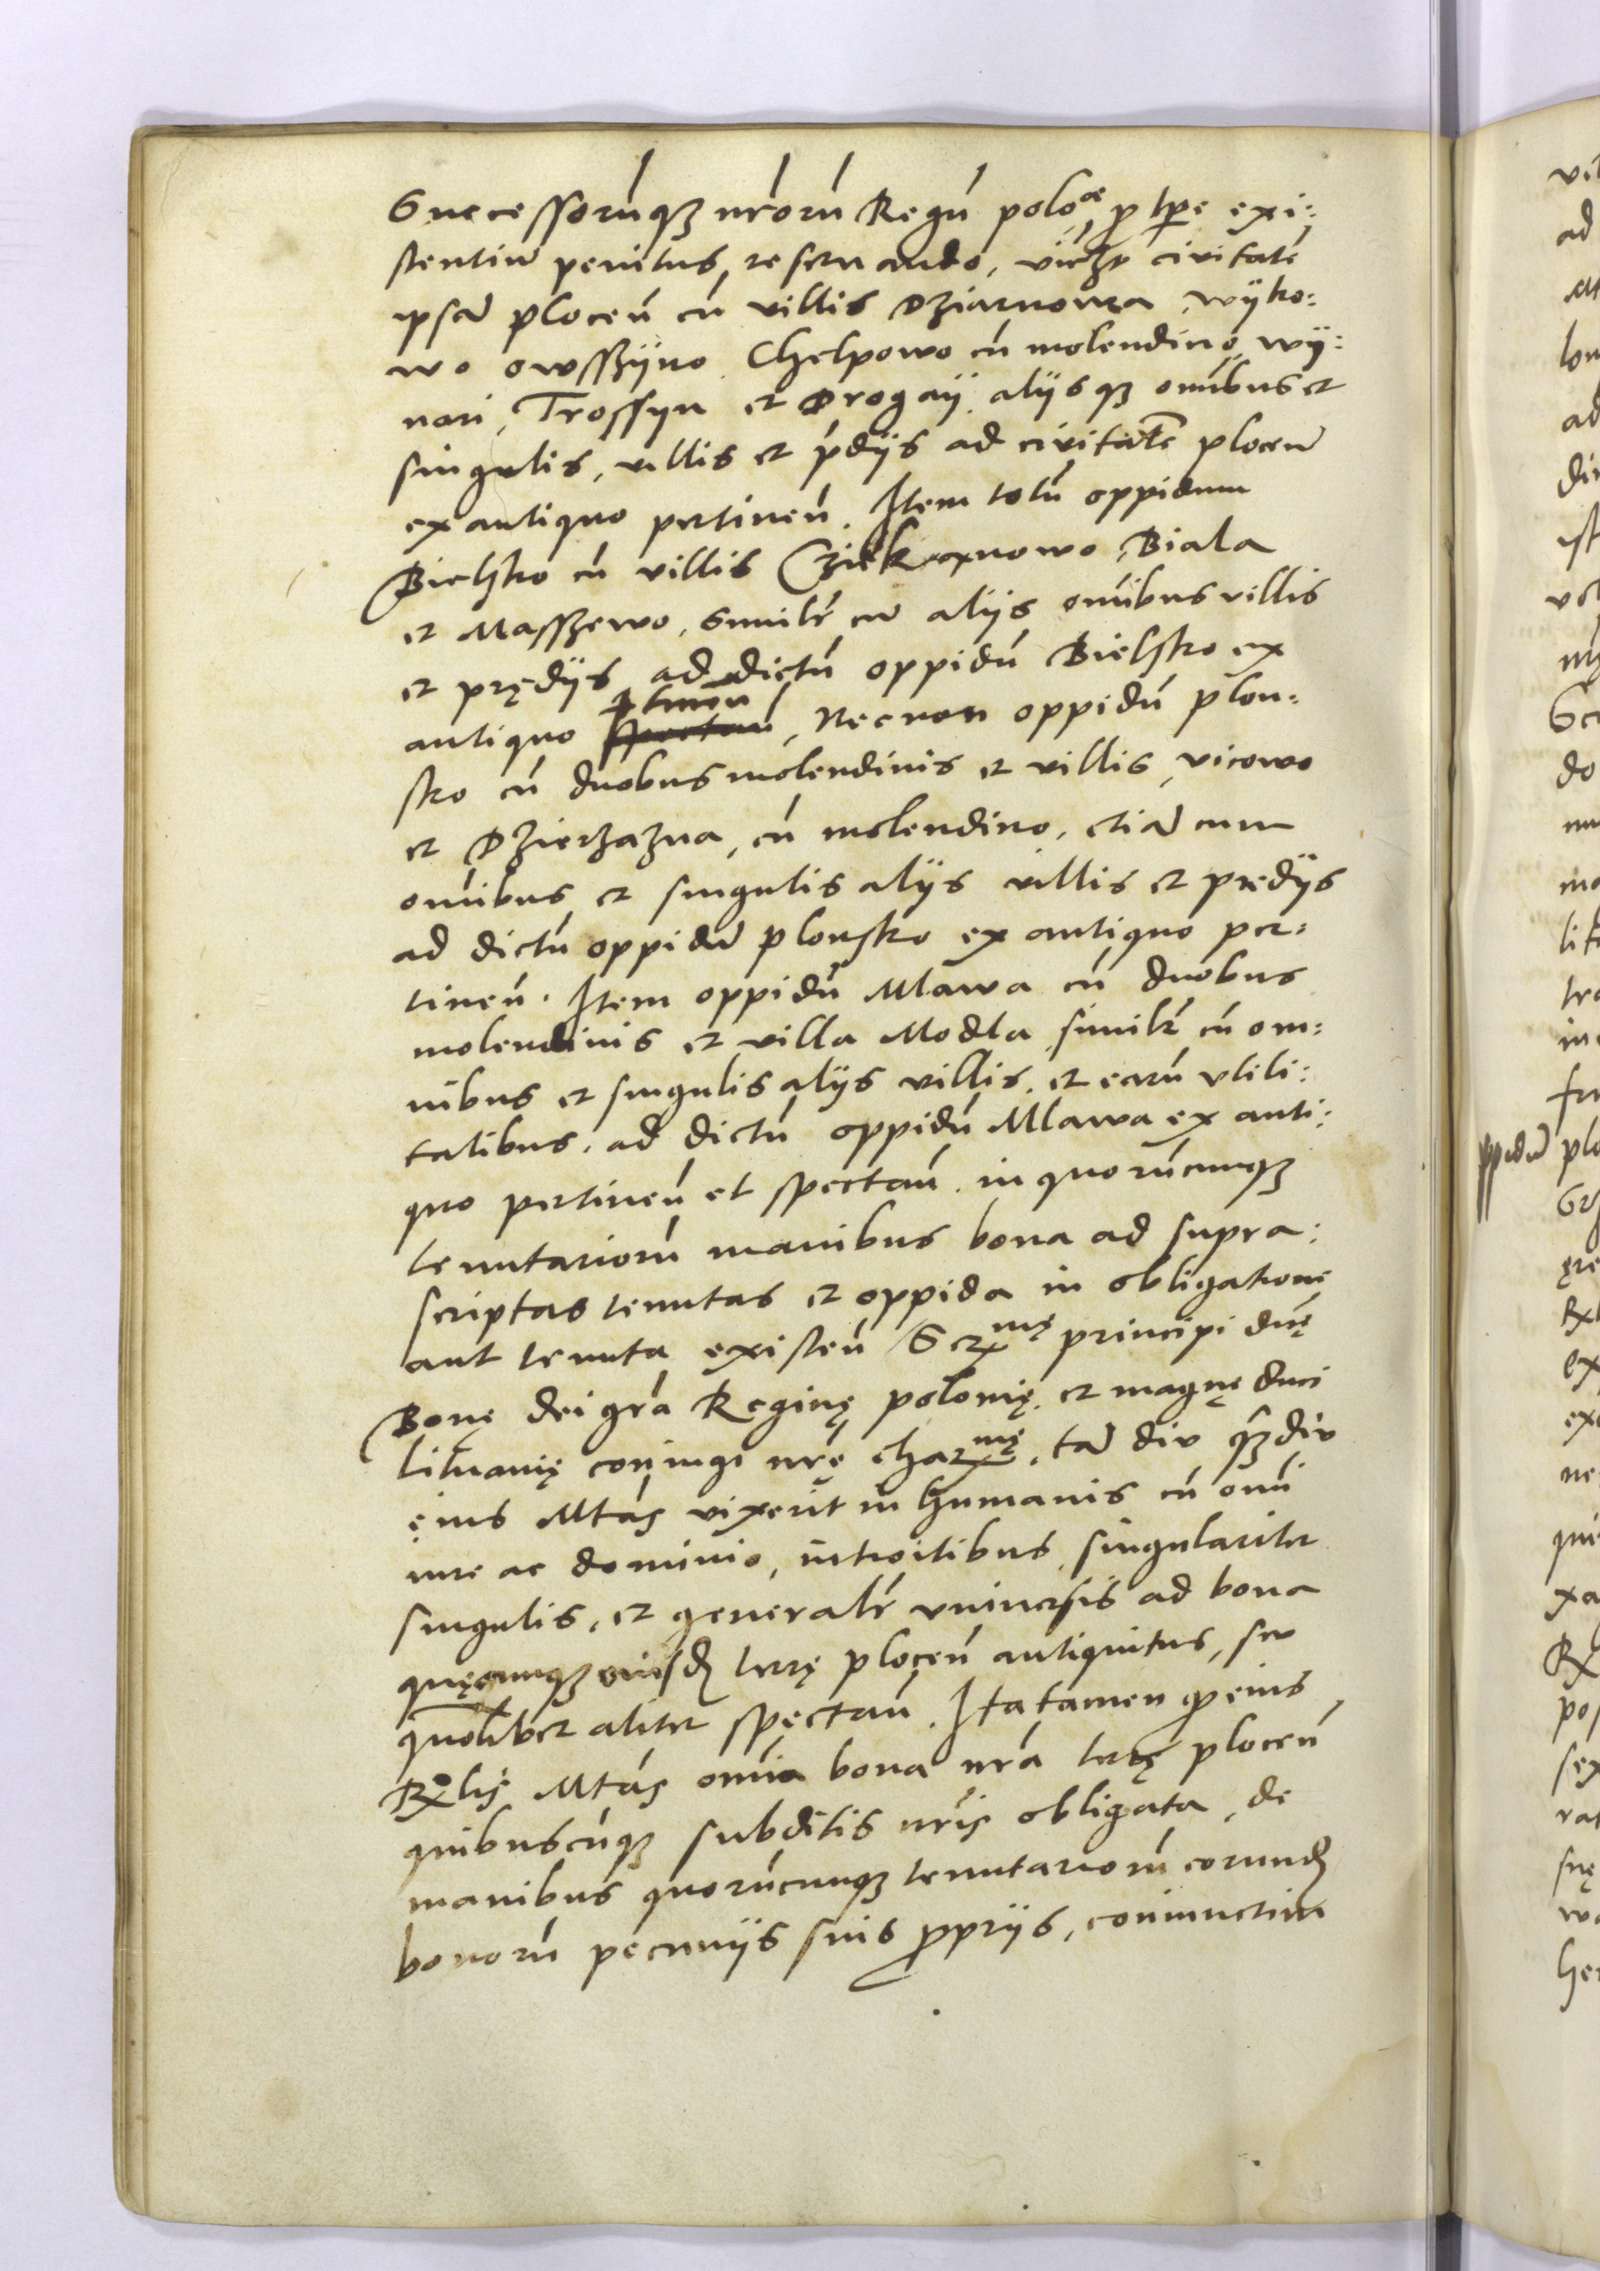 Successorúqꝫ nŕorú Regú poloᵉ p tp̱e exi:
stentiu penitus reseruando, vicꝫ ciuitatē
ipsā plocen̄ cú villis Dziarnowa wÿko:
wo owsszÿno Chelpowo cú molendino wÿ:
nari, Trossyn et Drogaÿ alÿsqꝫ om̄ibus et
singulis, villis et p̄dÿs ad ciuitatē plocen̄
ex antiquo pertinen̄. Item totú oppidum
Bielsko cú villis Biala
et Masszewo, Similr̄ cū alÿs om̄ibus villis
et prędÿs ad dictú oppidú Bielsko ex
antiquo ꝑtinen̄, Necnon oppidú plon:
sko cú duobus molendinis et villis, vicowo
et Dzierzazna, cú molendino, etiā cum
om̄ibus et singulis alÿs villis et predÿs
ad dictú oppidū plonsko ex antiquo per:
tinen̄. Item oppidú Mlawa cú duobus
molendinis et villa Modla, similr̄ cú om:
nibus et singulis alÿs villis, et earú vtili:
tatibus, ad dictú oppidú Mlawa ex anti:
quo pertinen̄ et spectan̄, in quorúcunqꝫ
tenutariorú manibus bona ad supra:
scriptas tenutas et oppida in obligationę
aut tenuta existen̄ Serᵐᵉ̨ principi dn̄ę
Bonę dei gr̄a Reginę polonię, et magnę duci
Lituanię coniugi nr̄ę charᵐᵉ̨, tā diu qꝫdiu
eius Mtás vixerit in humanis cú om̄i
iure ac dominio, introitibus, singulariter
singulis, et generalr̄ vniuersis ad bona
quęcunqꝫ eiusd̄ terrę plocen̄ antiquitus, seu
quolibet aliter spęctan̄. Ita tamen ꝙ eius
Rᵒlis Mtás om̄ia bona nr̄a terrę plocen̄
quibuscúqꝫ subditis nr̄is obligata, de
manibus quorúcunqꝫ tenutariorú eorund̄
bonorú pecunÿs suis ꝓprÿs, coniunctim
ppidū